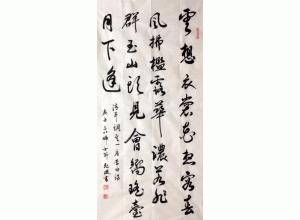 雲想衣裳花想容春
風拂檻露華濃若非
群玉山頭見會向瑤臺
月下逢
清平調之一 唐李白詩